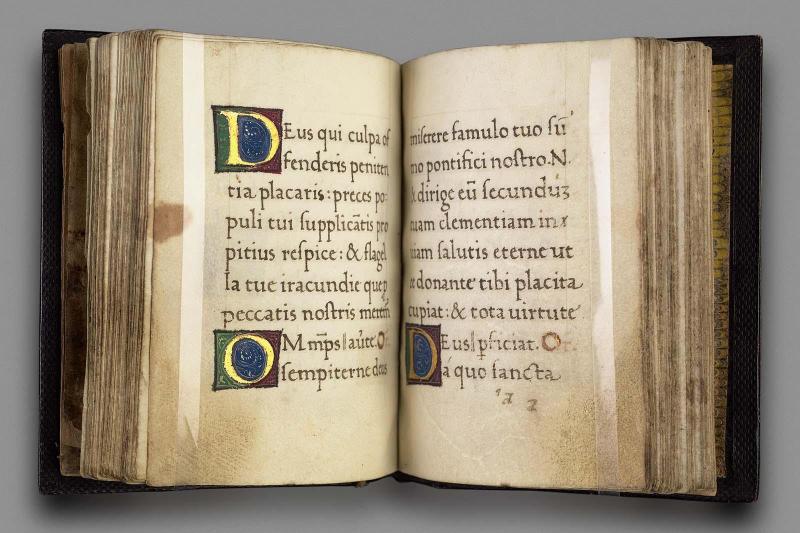 DEus qui culpa of
fenderis peniten
tia placaris: preces po-
puli tui supplicātis pro
pitius respice: & flagel
la tue iracundie que p
peccatis nostris
OMmps aūte. Or.
sempiterne deus
miserere famulo tuo sū
mo pontifici nostro. N.
& dirige eū secundūʒ
tuam clementiam in
uiam salutis eterne ut
te donante tibi placita
cupiat: & tota uirtute
DEus pficiat. Or.
á quo sancta